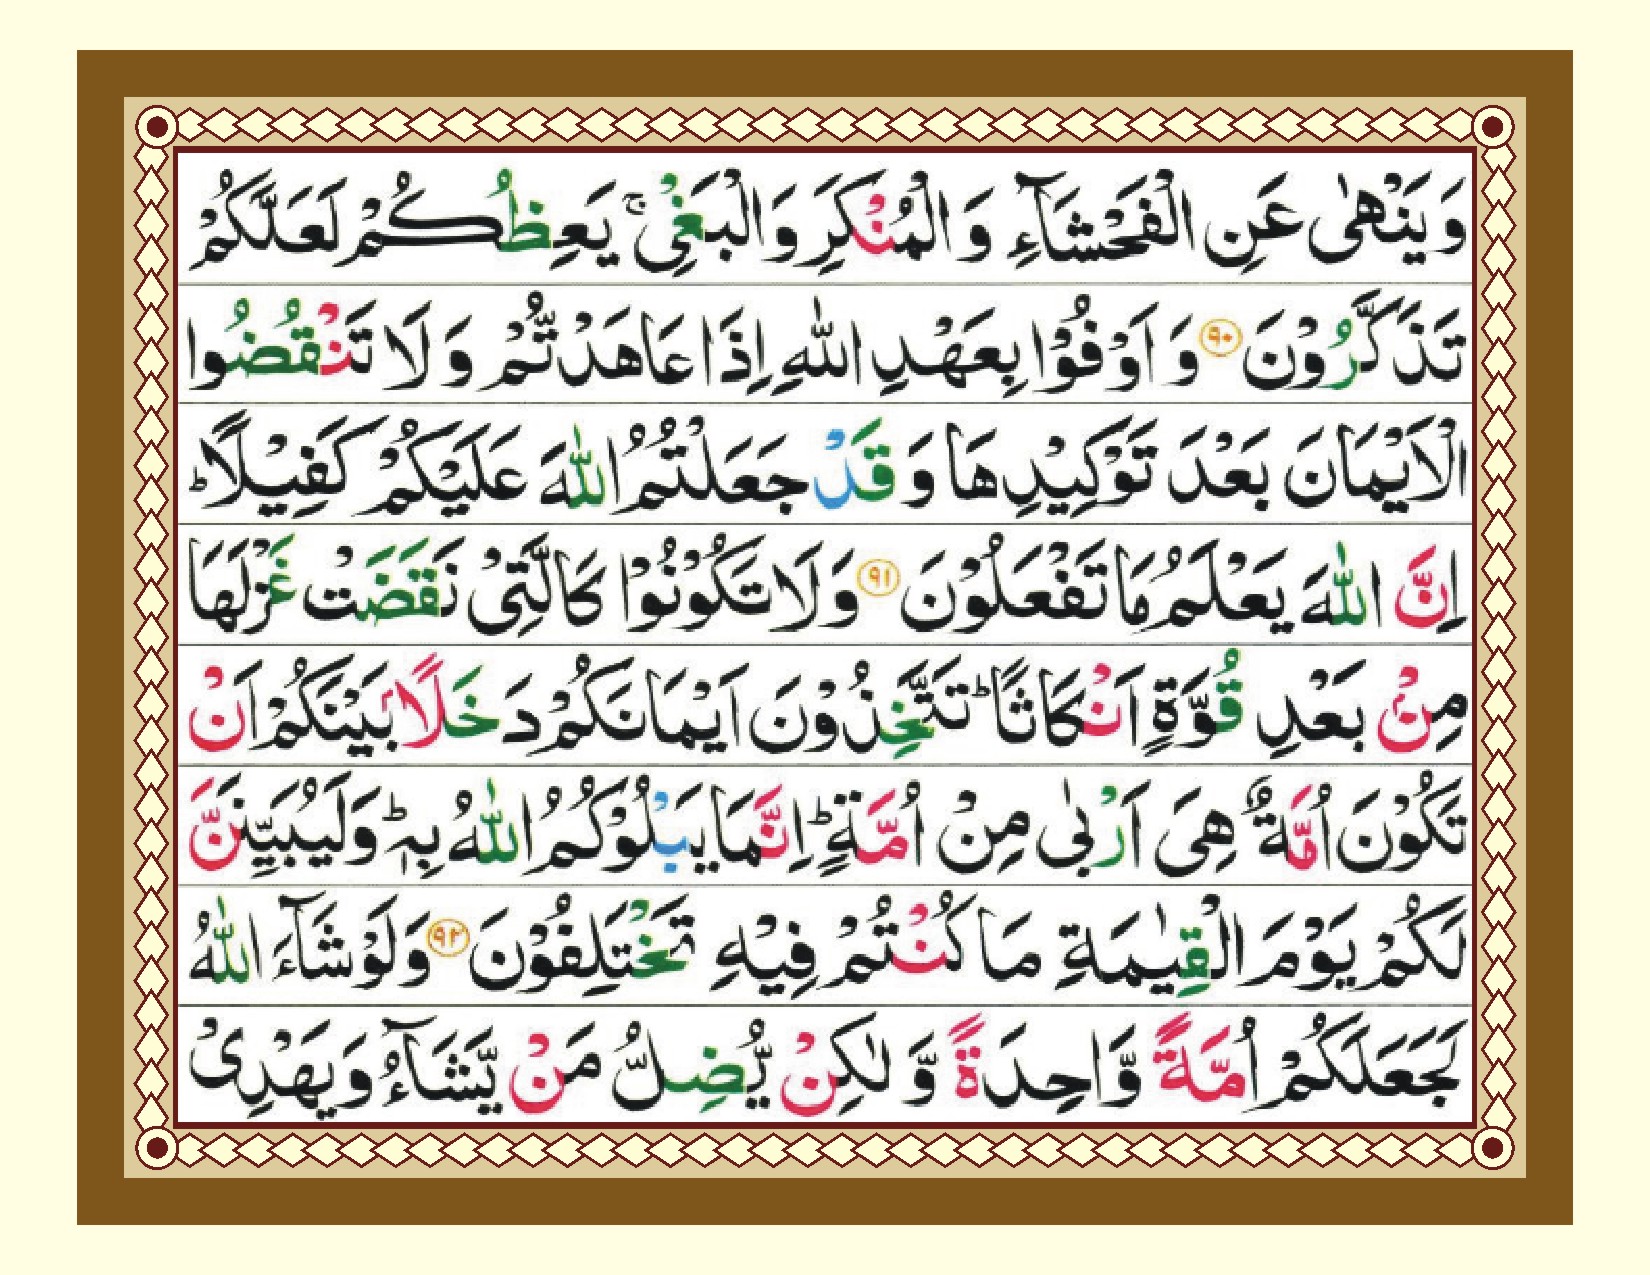 وَيَنْهٰى عَنِ الْفَحْشَآءِ وَ الْمُنْكَرِ وَالْبَغْيِ ۚ يَعِظُكُمْ لَعَلَّكُمْ
تَذَكَّرُوْنَ ۹۰ وَ اَوْفُوْا بِعَهْدِ اللّٰهِ اِذَا عَاهَدْتُّمْ وَ لَا تَنْقُضُوا
الْاَيْمَانَ بَعْدَ تَوْكِيْدِهَا وَ قَدْ جَعَلْتُمُ اللّٰهَ عَلَيْكُمْ كَفِيْلًا ؕ
اِنَّ اللّٰهَ يَعْلَمُ مَا تَفْعَلُوْنَ ۹۱ وَلَا تَكُوْنُوْا كَالَّتِيْ نَقَضَتْ غَزْلَهَا
مِنْۢ بَعْدِ قُوَّةٍ اَنْكَاثًا ؕ تَتَّخِذُوْنَ اَيْمَانَكُمْ دَخَلًاۢ بَيْنَكُمْ اَنْ
تَكُوْنَ اُمَّةٌ هِيَ اَرْبٰى مِنْ اُمَّةٍ ؕ اِنَّمَا يَبْلُوْكُمُ اللّٰهُ بِهٖ ؕ وَلَيُبَيِّنَنَّ
لَكُمْ يَوْمَ الْقِيٰمَةِ مَا كُنْتُمْ فِيْهِ تَخْتَلِفُوْنَ ۹۲ وَلَوْ شَآءَ اللّٰهُ
لَجَعَلَكُمْ اُمَّةً وَّاحِدَةً وَّ لٰكِنْ يُّضِلُّ مَنْ يَّشَآءُ وَيَهْدِيْ